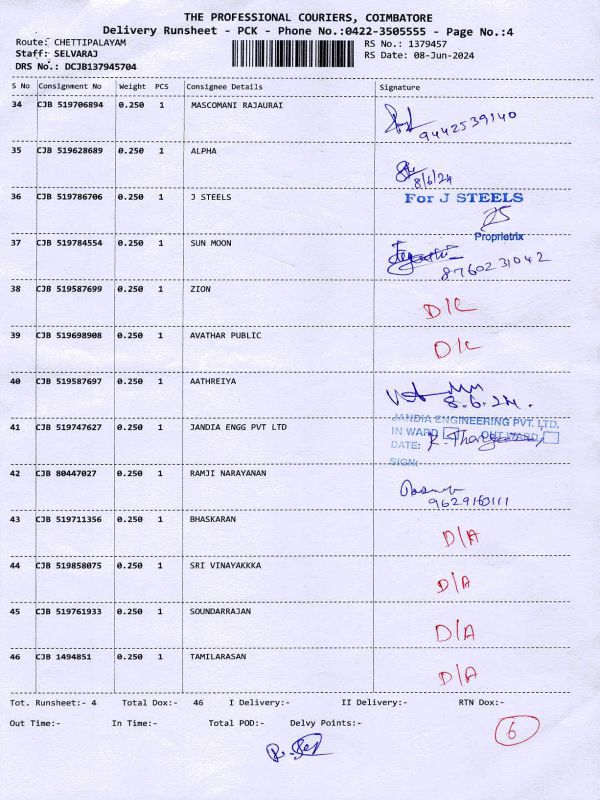 THE PROFESSIONAL COURIERS, COIMBATORE
Delivery Runsheet - PCK - Phone No.:0422-3505555 - Page No.:4
Route: CHETTIPALAYAM RS No.: 1379457
Staff: SELVARAJ RS Date: 08-Jun-2024
DRS No.: DCJB137945704
S No Consignment No Weight PCS Consignee Details Signature
34 CJB 519706894 0.250 1 MASCOMANI RAJAURAI
9442539140
35 CJB 519628689 0.250 1 ALPHA
8/6/24
36 CJB 519786706 0.250 1 J STEELS For J STEELS
Proprietrix
37 CJB 519784554 0.250 1 SUN MOON
8760231042
38 CJB 519587699 0.250 1 ZION D/L
39 CJB 519698908 0.250 1 AVATHAR PUBLIC D/L
40 CJB 519587697 0.250 1 AATHREIYA
8.6.24.
41 CJB 519747627 0.250 1 JANDIA ENGG PVT LTD JANDIA ENGINEERING PVT. LTD.
IN WARD OUT WARD
DATE:
SIGN:
42 CJB 80447027 0.250 1 RAMJI NARAYANAN
9629163111
43 CJB 519711356 0.250 1 BHASKARAN D/A
44 CJB 519858075 0.250 1 SRI VINAYAKKKA D/A
45 CJB 519761933 0.250 1 SOUNDARRAJAN D/A
46 CJB 1494851 0.250 1 TAMILARASAN D/A
Tot. Runsheet:- 4 Total Dox:- 46 I Delivery:- II Delivery:- RTN Dox:-
Out Time:- In Time:- Total POD:- Delvy Points:- 6